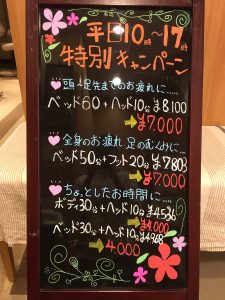 平日10時〜17時
特別キャンペーン
頭〜足先までのお疲れに....
ベッド60+ヘッド10分 ¥8100
→¥7.000
全身のお疲れ、足のむくみに....
ベッド50分+フット20分 ¥7803
→¥7.000
ちょっとしたお時間に....
ボディ30分+ヘッド10分 ¥4536
→¥4.000
ベッド30分+ヘッド10分 ¥4968
→4000